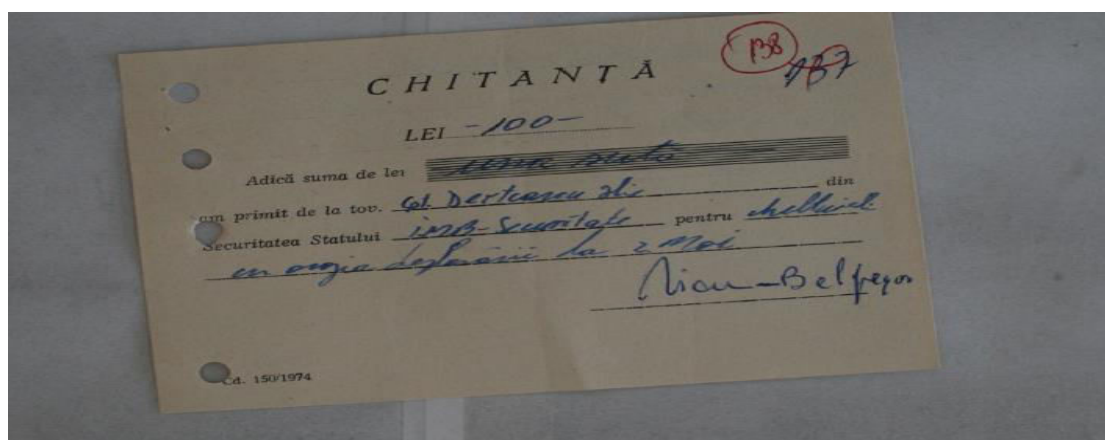 138
137
CHITANȚĂ
LEI -100-
Adică suma de lei una sută
am primit de la tov. Col. Derteanu Ilie din
Securitatea Statului IMB-Securitate pentru cheltuieli
cu deplasării la 2 Mai
-Belfegor
Cd. 150/1974